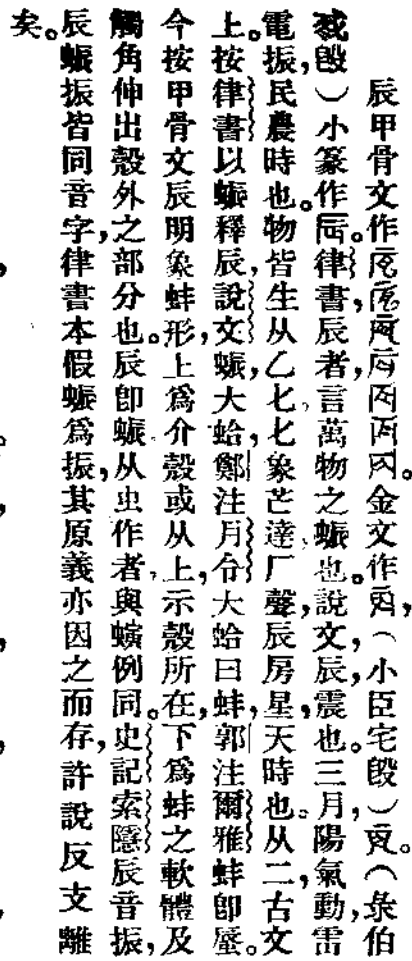 辰甲骨文作。金文作，（小臣宅𣪘）。（彔伯
𢦚𣪘）小篆作。律書，辰者，言萬物之蜄也。說文，辰，震也。三月，陽氣動，雷
電振，民農時也。物皆生从乙匕，匕象芒達厂聲，辰房星，天時也。从二，二古文
上。按律書以蜄釋辰，說文蜄，大蛤，鄭注月令大蛤曰蚌，郭注爾雅蚌即蜃。
今按甲骨文辰明象蚌形，上爲介殼或从上，示殼所在，下爲蚌之軟體及
觸角伸出殼外之部分也。辰卽蜄，从虫作者，與蠙例同。史記索隱辰音振，
辰蜄振皆同音字，律書本假蜄爲振，其原義亦因之而存，許說反支離
矣。